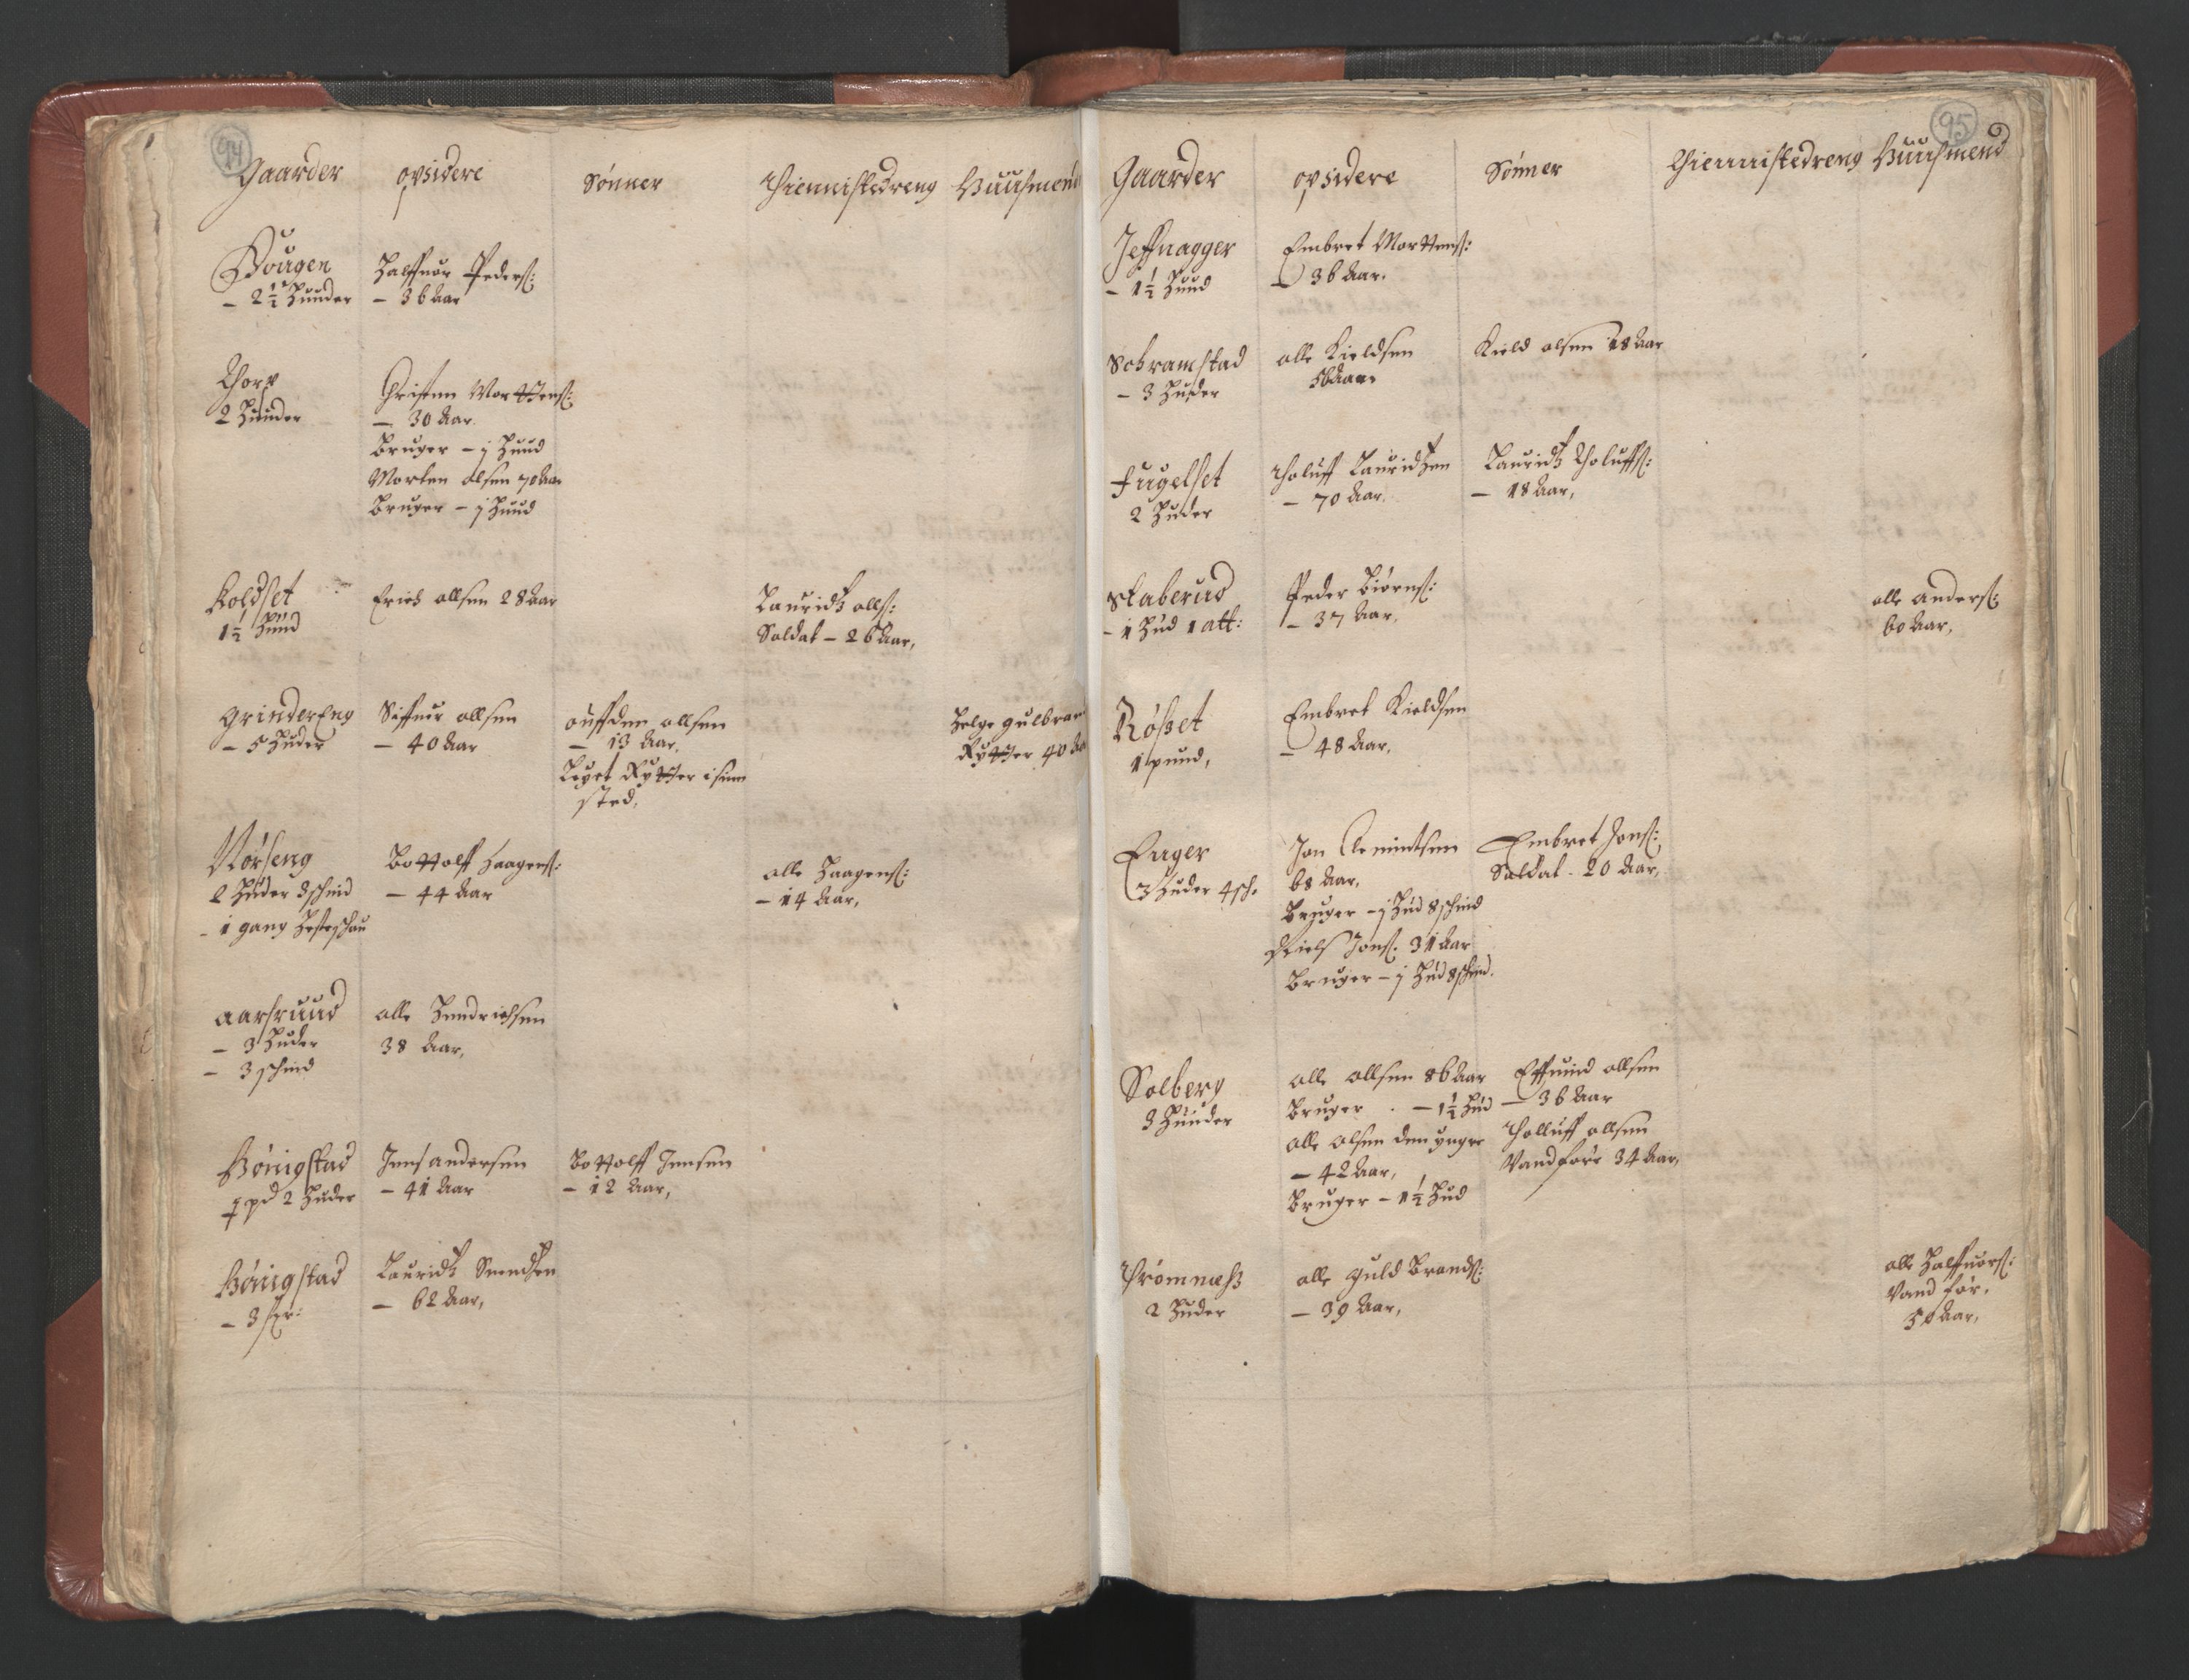 94
Gaarder opsidere Sønner Thiennistedreng Huusmend
Hougen
- 2½ Hunder
Halffuor Peders:
- 36 Aar
Thorp
2 Hunder
Christen Mortens:
- 30 Aar
Bruger - j Huud
Morten Olsen 70 Aar
Bruger - j Huud
Koldset
1½ Huud
Erich ollsen 28 Aar
Lauridtz olls:
Soldat - 26 Aar,
GrinderEng
- 5 Huder
Siffuer ollsen
- 40 Aar
ollsen
- 13 Aar,
Leyet Rytter i sinn
sted,
Helge gulbran
Rytter 40 Aa
Nørseng
2 Huder 3 schind
- 1 gang
Bottolff Haagens:
- 44 Aar
olle Haagens:
- 14 Aar,
aarsruud
- 3 Huder
- 3 schind
olle Hendrichsen
38 Aar,
Hønigstad
pd 2 Huder
Jens andersen
- 41 Aar
Bottolff Jensen
- 12 Aar,
Hønigstad
- 3
Lauridtz Suendsen
- 62 Aar,
95
Gaarder opsidere Sønner Thiennistedreng Huusmend
Jeffnagger
- 1½ Huud
Embret Mortens:
- 36 Aar.
Schramstad
- 3 Huder
olle Kieldsen
56 Aar
Kield olsen 18 Aar
Fugelset
2 Huder
Tholuff Lauridtzen
- 70 Aar
Lauridtz Tholuffs:
- 18 Aar,
Staberud
- 1 Hud 1 att:
Peder Biørns:
- 37 Aar,
olle anders:
60 Aar,
Røsset
1 pund,
Embret Kieldsen
- 48 Aar,
Enger
3 Huder 4 sch.
Jon Clemmitsen
68 Aar,
Bruger - j Hud 8 schind
Niels Jons: 31 Aar
Bruger - j Hud 8 schind.
Embret Jons:
Soldat. 20 Aar,
Solberg
3 Huuder
olle ollsen 86 Aar
Bruger - 1½ Hud
olle olsen den yngre
- 42 Aar,
Bruger - 1½ Hud
Effuind ollsen
- 36 Aar
Tholluff ollsen
Vandføre 34 Aar,
Thrømnæss
2 Huder
olle guldbrands:
- 39 Aar,
olle Halffuors:
Vand før,
50 Aar,